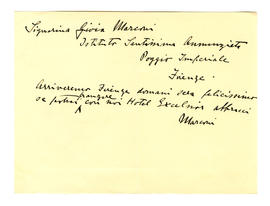 Signorina Gioia Marconi
Istituto Santissima Annunziata
Poggio Imperiale
Firenze.
Arriveremo Firenze domani sera felicissimo
se potrai pranzare con noi Hotel Excelsior abbracci
Marconi